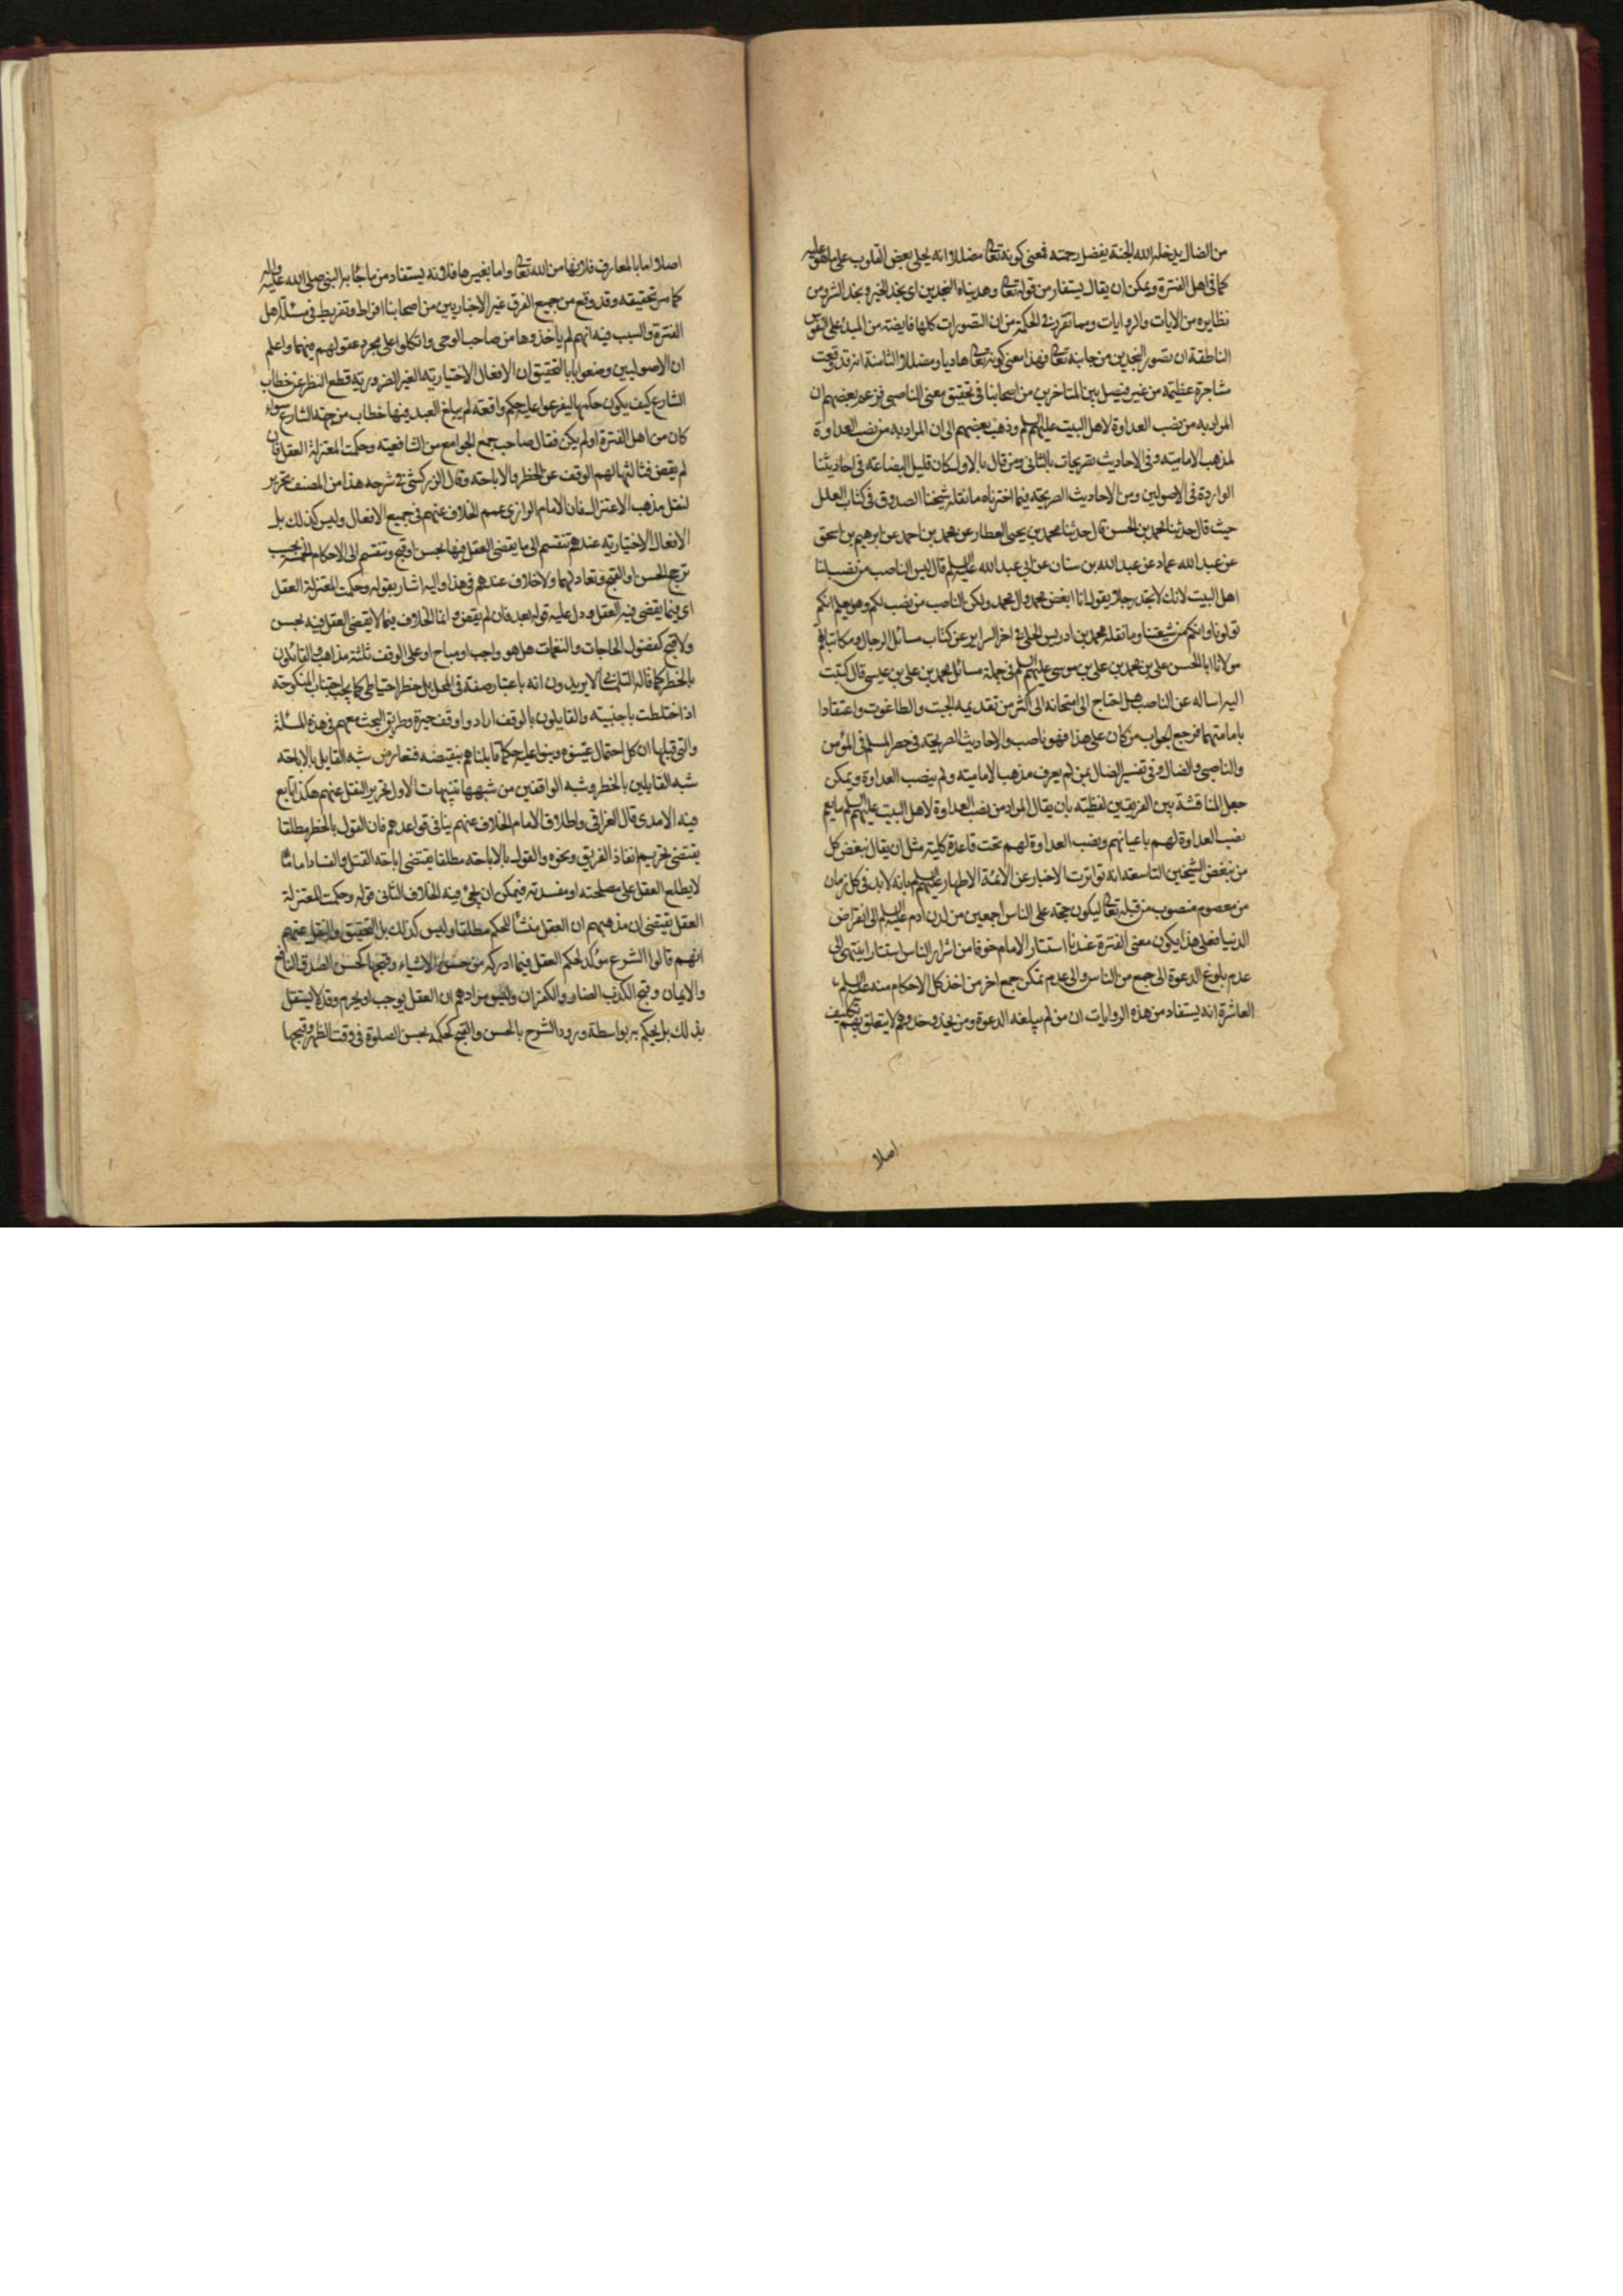 من الضال يدخله الله الجنة بفضل رحمته فمعنى كونه تعالى مضللا انه يخلى بعض القلوب على ما هو عليه
كما فى اهل الفترة ويمكن ان يقال يستفاد من قوله تعالى وهديناه النجدين اى نجد الخير ونجد الشر ومن
نظايره من الايات والروايات ومما تقرر فى الحكمة من ان التصورات كلها فايضة من المبدء على النفوس
الناطقة ان تصور النجدين من جانبه تعالى فهذا معنى كونه تعالى هاديا ومضللا الثامنة انه قد وقعت
مشاجرة عظيمة من غير فيصل بين المتاخرين من اصحابنا فى تحقيق معنى الناصبى فزعم بعضهم ان
المراد به من نصب العداوة لاهل البيت عليهم السلم وذهب بعضهم الى ان المراد به من نصب العداوة
لمذهب الامامية وفى الاحاديث تصريحات بالثانى ومن قال بالاول كان قليل البضاعة فى احاديثنا
الواردة فى الاصولين ومن الاحاديث الصريحة فيما اخترناه ما نقله شيخنا الصدوق فى كتاب العلل
حيث قال حدثنا محمد بن الحسن قال حدثنا محمد بن يحيى العطار عن محمد بن احمد عن ابرهيم بن اسحق
عن عبد الله حماد عن عبد الله بن سنان عن ابى عبد الله عليه السلم قال ليس الناصب من نصب لنا
اهل البيت لانك لا تجد رجلا يقول انا ابغض محمد وال محمد ولكن الناصب من نصب لكم وهو يعلم انكم
تولونا وانكم من شيعتنا وما نقله محمد بن ادريس الحلى فى اخر السراير عن كتاب مسائل الرجال ومكاتباتهم
مولانا ابا الحسن على بن محمد بن على بن موسى عليهم السلم فى جملة مسائل محمد بن على بن عيسى قال كتبت
اليه اساله عن الناصب هل احتاج الى امتحانه الى اكثر من تقديمه الجبت والطاغوت واعتقاد
بامامتهما فرجع الجواب من كان على هذا فهو ناصب والاحاديث الصريحة فى حصر المسلم فى المؤمن
والناصبى والضال وفى تفسير الضال بمن لم يعرف مذهب الامامية ولم ينصب العداوة ويمكن
جعل المناقشة بين الفريقين لفظية بان يقال المراد من نصب العداوة لاهل البيت عليهم السلم ما يعم
نصب العداوة لهم باعيانهم ونصب العداوة لهم تحت قاعدة كلية مثل ان يقال نبغض كل
من يبغض الشيخين التاسعة انه تواترت الاخبار عن الائمة الاطهار عليهم السلم بانه لا بد فى كل زمان
من معصوم منصوب من قبله تعالى ليكون حجة على الناس اجمعين من لدن ادم عليه السلم الى انقراض
الدنيا فعلى هذا يكون معنى الفترة عندنا استتار الامام خوفا من اشرار الناس استتارا ينتهى الى
عدم بلوغ الدعوة الى جمع من الناس والى عدم تمكن جمع اخر من اخذ كل الاحكام منه عليه السلم
العاشرة انه يستفاد من هذه الروايات ان من لم يبلغه الدعوة ومن يحذو حذوهم لا يتعلق بهم تكليف
اصلا
اصلا اما بالمعارف فلانها من الله تعالى واما بغيرها فلانه يستفاد من ما جاء به النبى صلى الله عليه واله
كما مر تحقيقه وقد وقع من جميع الفرق غير الاخباريين من اصحابنا افراط وتفريط فى مسئلة اهل
الفترة والسبب فيه انهم لم ياخذوها من صاحب الوحى واتكلوا على مجرد عقولهم فيهما واعلم
ان الاصوليين وضعوا بابا لتحقيق ان الافعال الاختيارية الغير الضرورية قطع النظر عن خطاب
الشارع كيف يكون حكمها ليفرعوا عليه حكم واقعة لم يبلغ العبد فيها خطاب من جهة الشارع سواء
كان من اهل الفترة او لم يكن فقال صاحب جمع الجوامع من الشافعية وحكمت المعتزلة العقل فان
لم يقض فثالثها لهم الوقف عن الحظر والاباحة وقال الزركشى فى شرحه هذا من المصنف تحرير
لنقل مذهب الاعتزال فان الامام الرازى عمم الخلاف عنهم فى جميع الافعال وليس كذلك بل
الافعال الاختيارية عندهم تنقسم الى ما يقضى العقل فيها بحسن او قبح وتنقسم الى الاحكام الخمسة بحسب
ترجح الحسن او القبح وتعادلهما ولا خلاف عندهم فى هذا واليه اشار بقوله وحكمت المعتزلة العقل
اى فيما يقضى فيه العقل ودل عليه قوله بعد فان لم يقض وانما الخلاف فيما لا يقضى العقل فيه بحسن
ولا قبح كفضول الحاجات والنغمات هل هو واجب او مباح او على الوقف ثلثة مذاهب والقائلون
بالحظر كما قاله لا يريدون انه باعتبار صفة فى المحل بل حظر احتياطى كما يجب اجتناب المنكوحة
اذا اختلطت باجنبية والقايلون بالوقف ارادوا وقف حيرة وطريق البحث معهم فى هذه المسئلة
والتى قبلها ان كل احتمال عينوه وبنوا عليه حكما قابلناهم بنقيضه فتعارض شبه القايل بالاباحة
شبه القايلين بالحظر وشبه الواقفين من شبهها تنبيهات الاول تحرير النقل عنهم هكذا تابع
فيه الامدى قال القرافى واطلاق الامام الخلاف عنهم ينافى قواعدهم فان القول بالحظر مطلقا
يقتضى تحريم انقاذ الغريق ونحوه والقول بالاباحة مطلقا يقتضى اباحة القتل والفساد اما ما
لا يطلع العقل على مصلحته او مفسدته فيمكن ان يجئ فيه الخلاف الثانى قوله وحكمت المعتزلة
العقل يقتضى ان مذهبهم ان العقل منشأ للحكم مطلقا وليس كذلك بل التحقيق والنقل عنهم
انهم قالوا الشرع مؤكد لحكم العقل فيما ادركه من حسن الاشياء وقبحها كحسن الصدق النافع
والايمان وقبح الكذب الضار والكفران وليس مرادهم ان العقل يوجب او يحرم وقد لا يستقل
بذلك بل يحكم به بواسطة ورود الشرع بالحسن والقبح كحكمه بحسن الصلوة فى وقت الظهر وقبحها